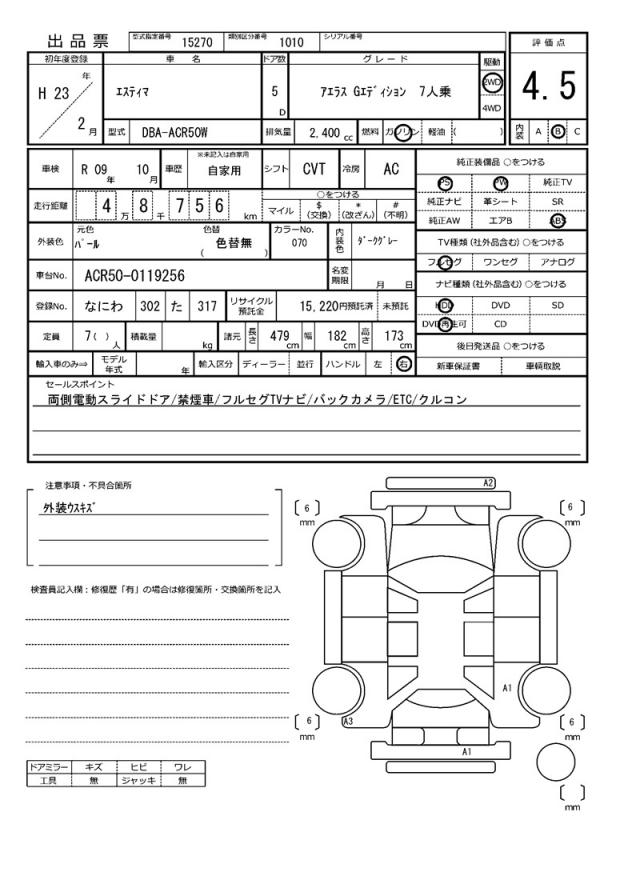 出品票 型式指定番号 15270 類別区分番号 1010 シリアル番号
評価点
初年度登録 車名 ドア数 グレード 駆動
H 23 年 2 月 エスティマ 5 D アエラス Gエディション 7人乗 2WD 4WD
4.5
型式 DBA-ACR50W 排気量 2,400 cc 燃料 ガソリン 軽油 ( )
内装 A B C
車検 R 09 年 10 月 車歴 ※未記入は自家用 自家用 シフト CVT 冷房 AC
純正装備品 ○をつける
PS PW 純正TV
純正ナビ 革シート SR
純正AW エアB ABS
走行距離 4 万 8 千 7 5 6 km
○をつける
マイル $ (交換) * (改ざん) # (不明)
外装色 元色 パール 色替 色替無 ( ) カラーNo. 070 内装色 ダークグレー
TV種類 (社外品含む) ○をつける
フルセグ ワンセグ アナログ
車台No. ACR50-0119256 名変期限 月 日
ナビ種類 (社外品含む) ○をつける
HDD DVD SD
DVD再生可 CD
登録No. なにわ 302 た 317 リサイクル預託金 15,220円預託済 未預託
定員 7( ) 人 積載量 kg 諸元 長さ 479 cm 幅 182 cm 高さ 173 cm
後日発送品 ○をつける
新車保証書 車輌取説
輸入車のみ⇒ モデル年式 年 輸入区分 ディーラー 並行 ハンドル 左 右
セールスポイント
両側電動スライドドア/禁煙車/フルセグTVナビ/バックカメラ/ETC/クルコン
注意事項・不具合箇所
外装ウスキズ
検査員記入欄：修復歴「有」の場合は修復箇所・交換箇所を記入
A2
6 mm
6 mm
A1
A3
6 mm
6 mm
A1
mm
ドアミラー キズ ヒビ ワレ
工具 無 ジャッキ 無